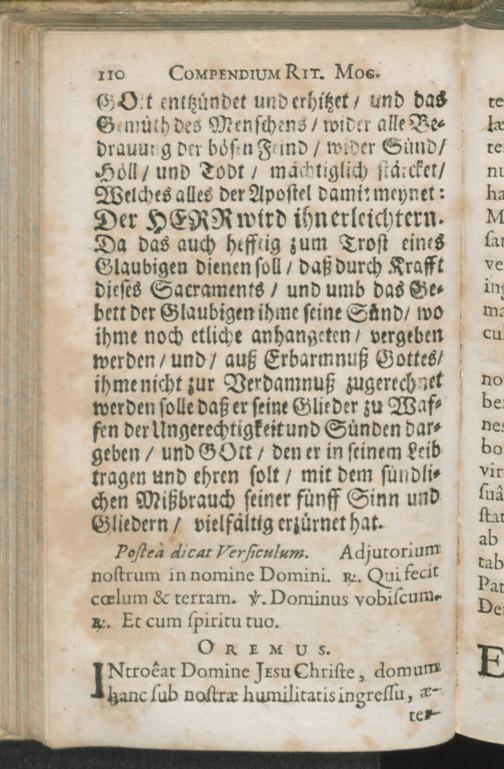 110 COMPENDIUM RIT. MOG.
GOtt entzündet und erhitzet / und das
Gemüth des Menschens / wider alle Be-
drauung der bösen Feind / wider Sünd /
Höll / und Todt / mächtiglich stärcket /
Welches alles der Apostel damit meynet:
Der HERR wird ihn erleichtern.
Da das auch hefftig zum Trost eines
Glaubigen dienen soll / daß durch Krafft
dieses Sacraments / und umb das Ge-
bett der Glaubigen ihme seine Sünd / wo
ihme noch etliche anhangeten / vergeben
werden / und / auß Erbarmnuß Gottes /
ihme nicht zur Verdamnuß zugerechnet
werden solle daß er seine Glieder zu Waf-
fen der Ungerechtigkeit und Sünden dar-
geben / und GOtt / den er in seinem Leib
tragen und ehren solt / mit dem sündli-
chen Mißbrauch seiner fünff Sinn und
Gliedern / vielfältig erzürnet hat.
Posteà dicat Versiculum. Adjutorium
nostrum in nomine Domini. ℟. Qui fecit
cœlum & terram. ℣. Dominus vobiscum.
℟. Et cum spiritu tuo.
OREMUS.
INtroêat Domine JESU Christe, domum
hanc sub nostræ humilitatis ingressu, æ-
ter-